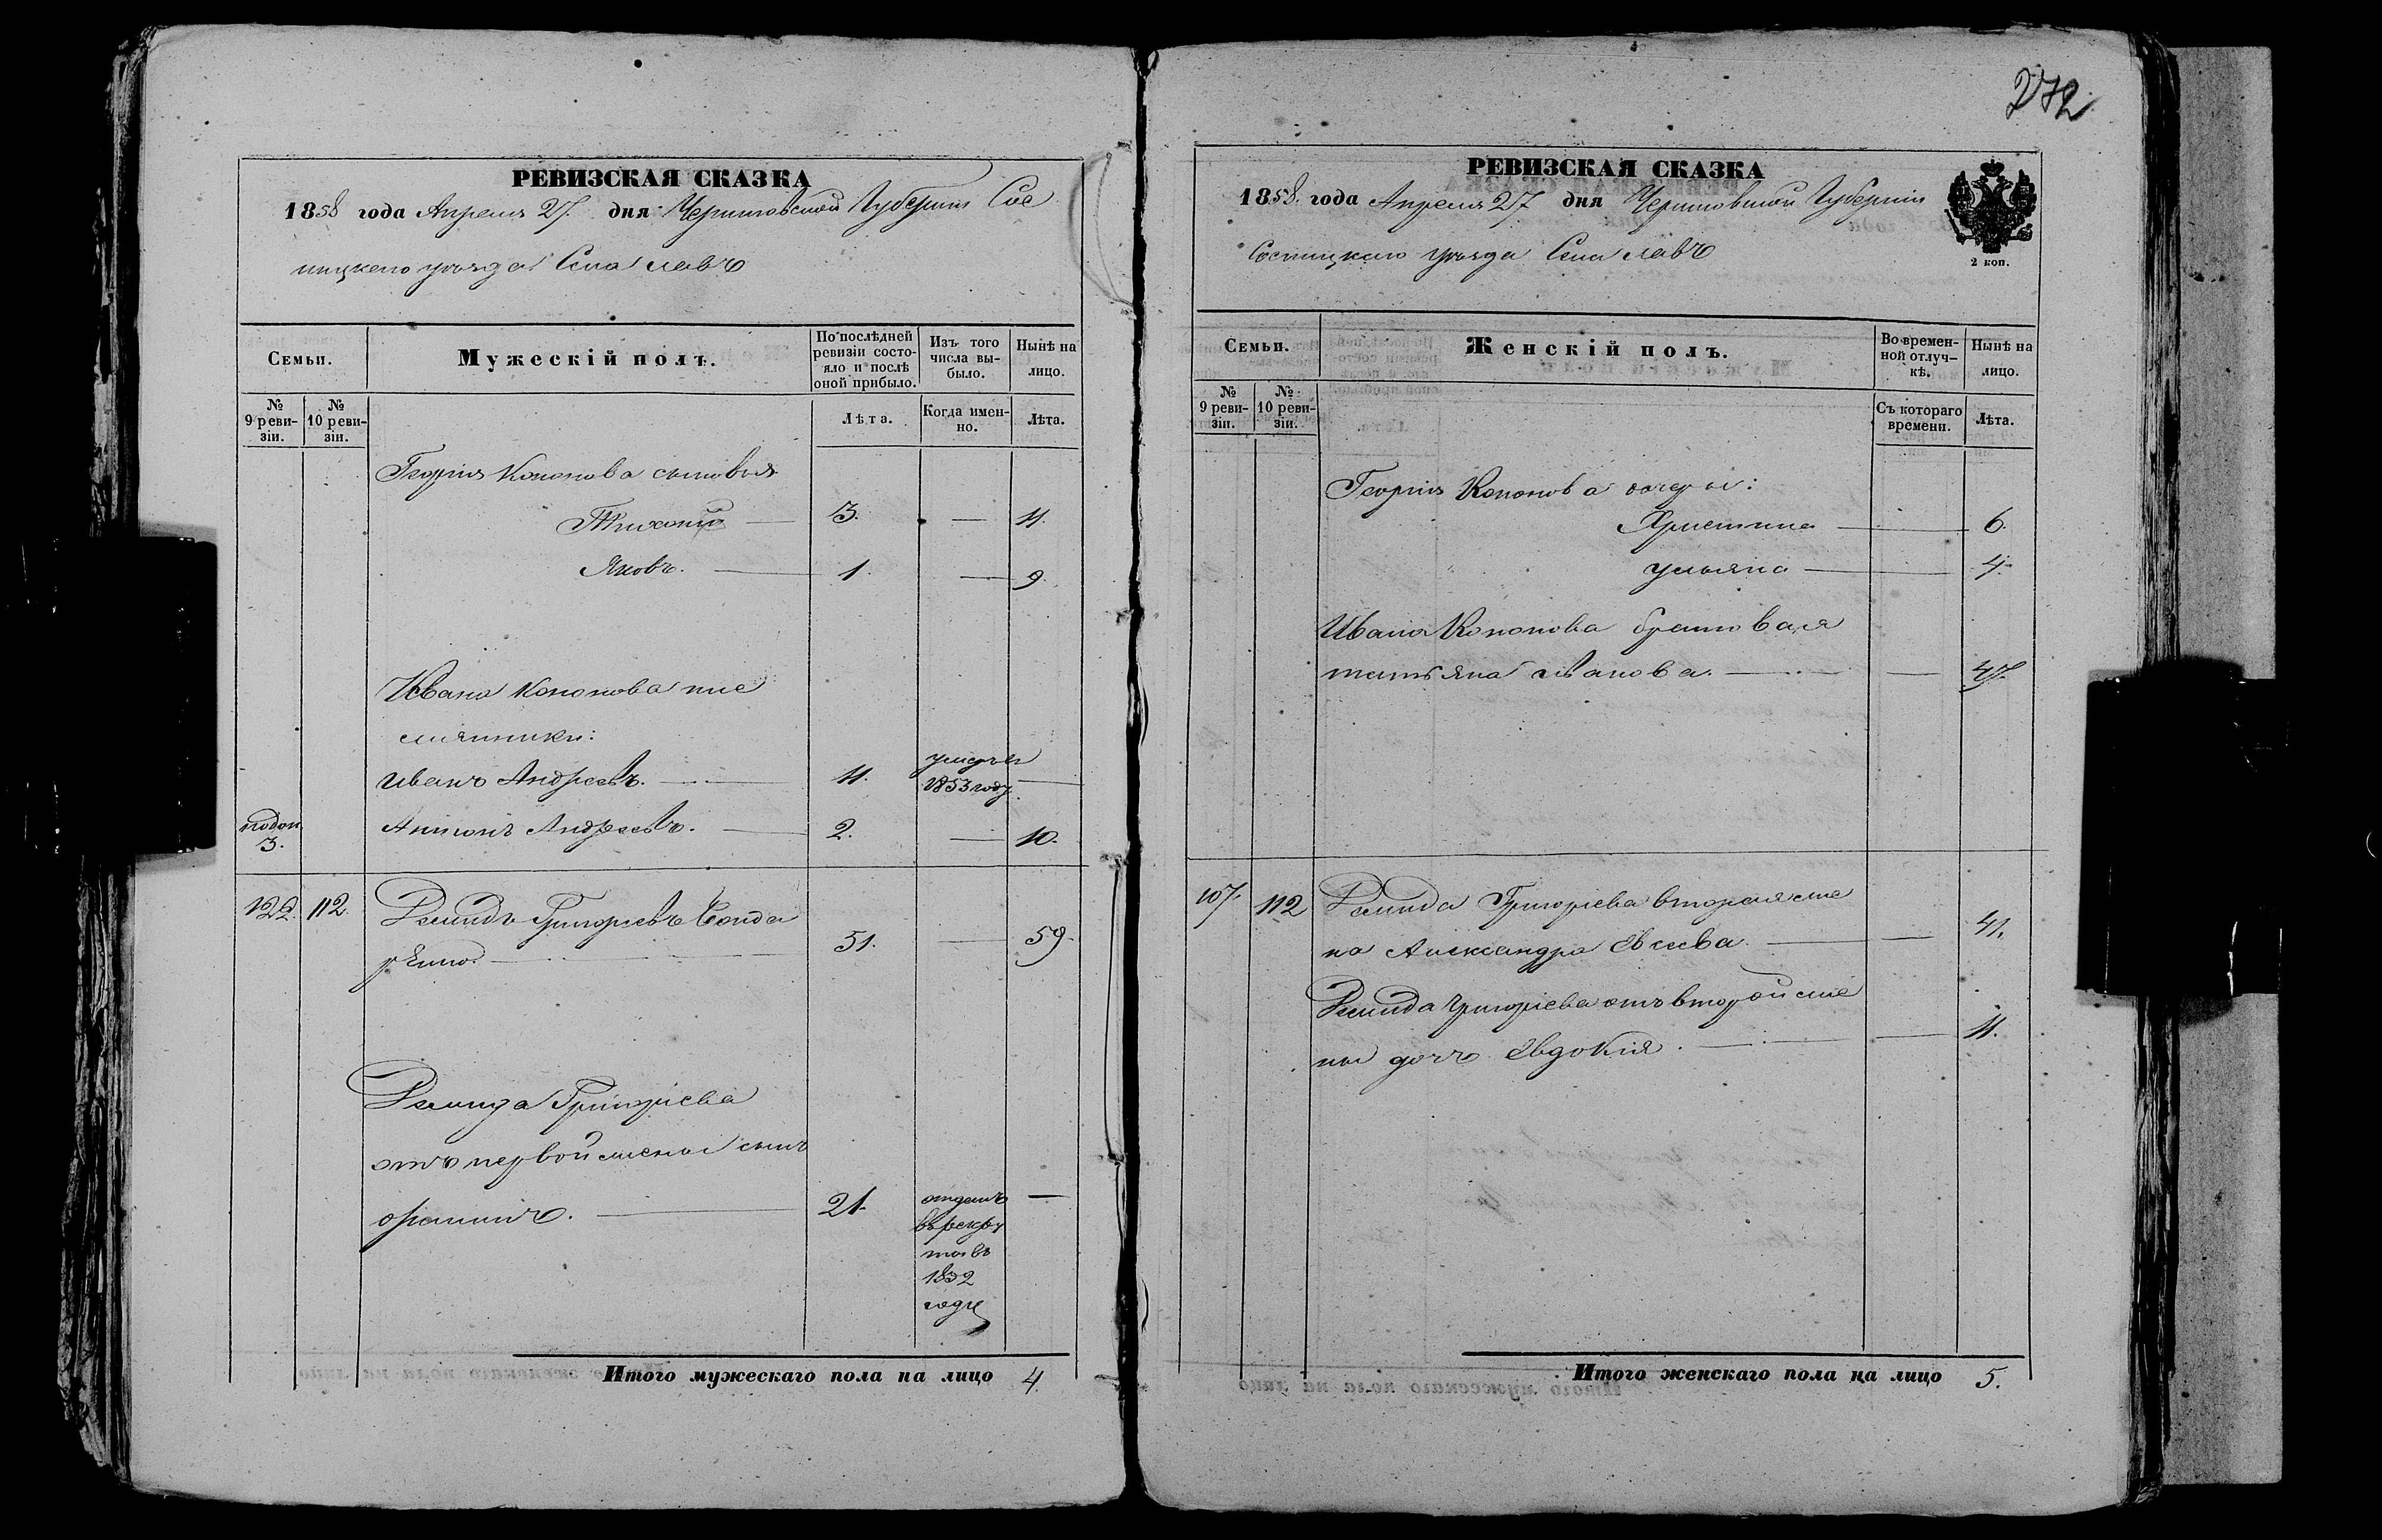 272
РЕВИЗСКАЯ СКАЗКА
1858 года Апреля 27. дня Черниговской Губернии Сос
ницкаго уѣзда Села
Семьи.
Мужескій полъ.
По послѣдней ревизіи состояло и послѣ оной прибыло.
Изъ того числа выбыло.
Нынѣ на лицо.
№ 9 ревизіи.
№ 10 ревизіи.
Лѣта.
Когда именно.
Лѣта.
Георгія Кононова сыновья
Тихонъ — 3. — 11.
Яковъ. — 1. — 9.
Ивана Кононова пле
мянники:
Иванъ Андреевъ. — 11. умеръ въ 1853 году —
Антонъ Андреевъ. — 2. — 10.
3.
122. 112. Демидъ Григорьевъ Бонда
ренко. — 51. — 59.
Демида Григоріева
отъ первой жены сынъ
— 21. отданъ
въ рекру
ты въ
1852
годе
Итого мужескаго пола на лицо 4.
РЕВИЗСКАЯ СКАЗКА
1858. года Апреля 27 дня Черниговской Губерніи
Сосницкаго уѣзда Села
2 коп.
Семьи.
Женскій полъ.
Во временной отлучкѣ.
Нынѣ на лицо.
№ 9 ревизіи.
№ 10 ревизіи.
Съ котораго времени.
Лѣта.
Георгія Кононова дочери:
Христина — 6.
Ульяна — 4.
Ивана Кононова братовая
татьяна — 47.
107. 112 Демида Григоріева вторая же
на Александра Евсеева. — 41.
Демида Григоріева отъ второй же
ны дочь Евдокія. — 11.
Итого женскаго пола на лицо 5.